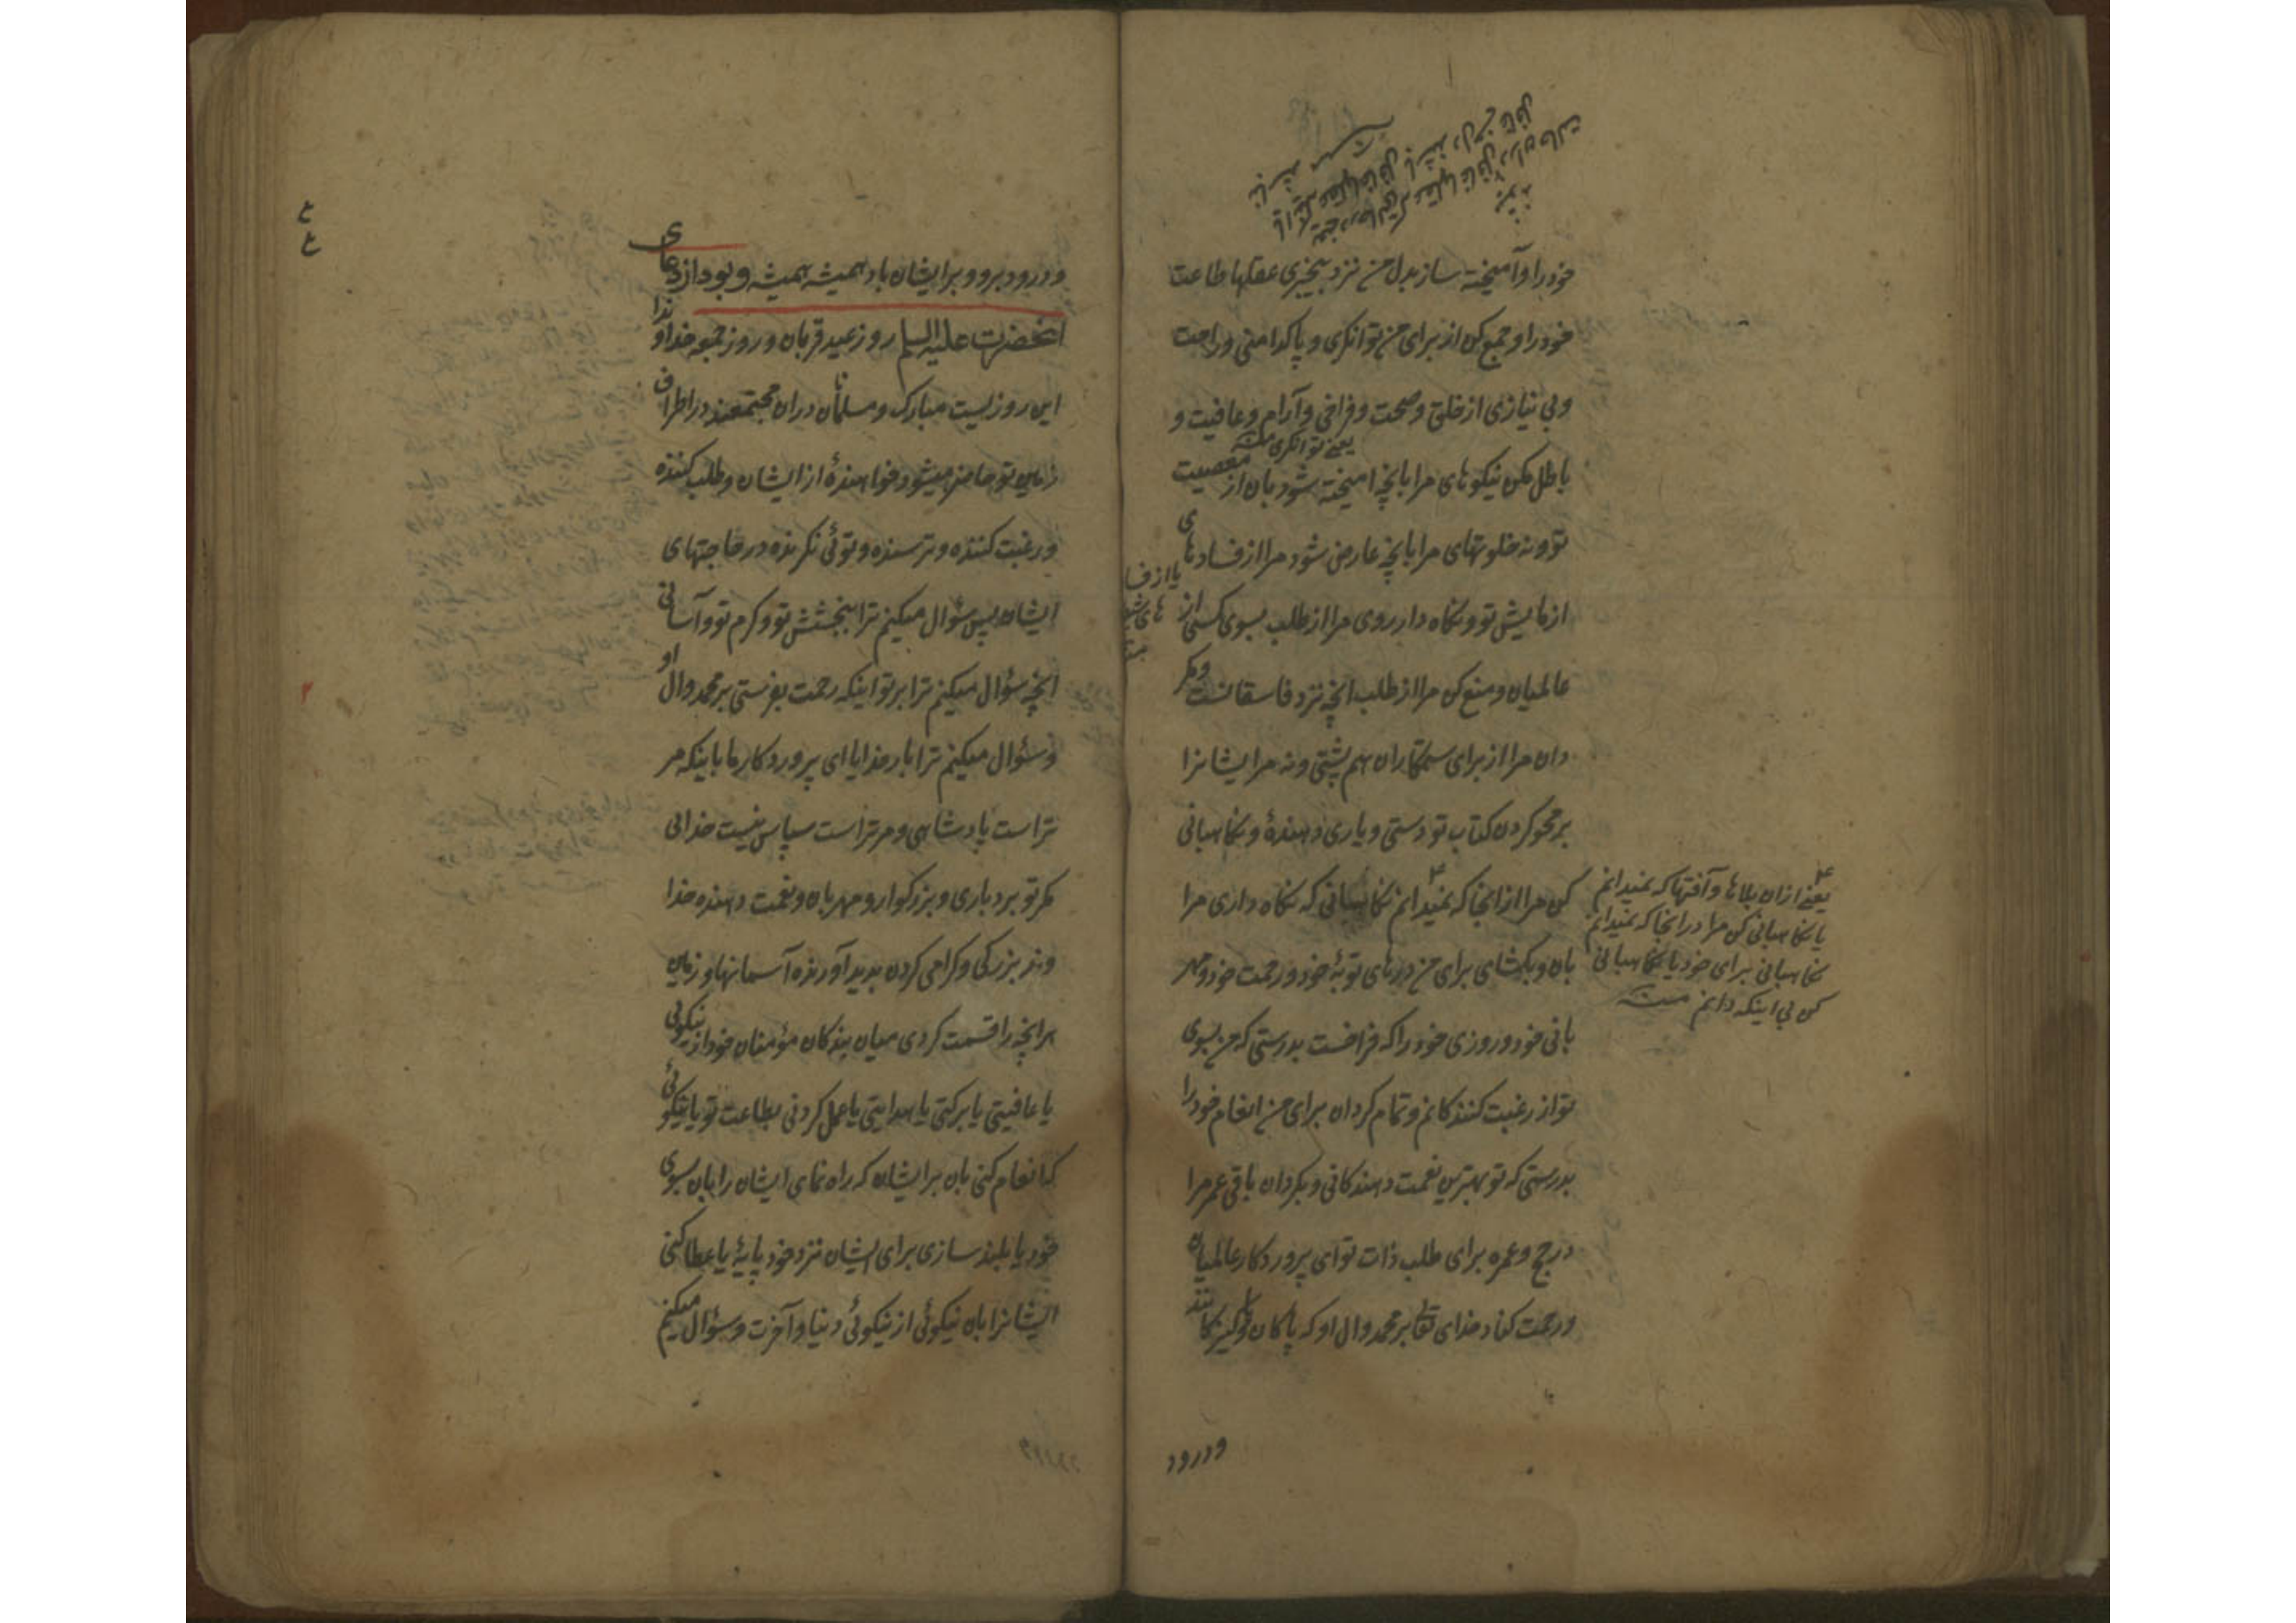 خود را و آمیخته ساز بدل من نزد بیخبری عقلها طاعت
خود را و جمع کن از برای من توانگری و پاکدامنی و راحت
و بی نیازی از خلق و صحت و فراخی و آرام و عافیت و
یعنی توانگری منه
باطل مکن نیکوهای مرا بانچه امیخته شود بان از معصیت
تو و نه خلوتهای مرا بانچه عارض شود مرا از فسادهای
یا از فسا
ازمایش تو و نگاه دار روی مرا از طلب بسوی کسی از
عالمیان و منع کن مرا از طلب انچه نزد فاسقانست و مگر
دان مرا از برای ستمکاران هم پشتی و نه مر ایشانرا
بر محو کردن کتاب تو دستی و یاری دهندهٔ و نگاهبانی
کن مرا از انجا که نمیدانم نگاهبانی که نگاه داری مرا
بان و بگشای برای من درهای توبهٔ خود و رحمت خود و مهر
بانی خود و روزی خود را که فراخست بدرستی که من بسوی
تو از رغبت کنندگانم و تمام گردان برای من انعام خود را
بدرستی که تو بهترین نعمت دهندگانی و بگردان باقی عمر مرا
در حج و عمره برای طلب ذات تو ای پروردگار عالمیان
و رحمت کناد خدای تعا بر محمد و ال او که پاکان و پاکیزگانند
یعنی ازان بلاها و آفتها که نمیدانم
یا نگاهبانی کن مرا در انجا که نمیدانم
نگاهبانی برای خود یا نگاهبانی
کن بی اینکه دانم منه
ودرود
و درود برو و بر ایشان باد همیشه همیشه و بود از دعای
انحضرت علیه السلم روز عید قربان و روز جمعه خداوندا
این روزیست مبارک و مسلمانان دران مجتمعند در اطراف
زمین تو حاضر میشود خواهندهٔ از ایشان و طلب کننده
و رغبت کننده و ترسنده و توئی نگرنده در حاجتهای
ایشان پس سؤال میکنم ترا ببخشش تو و کرم تو و آسانی
انچه سؤال میکنم ترا بر تو اینکه رحمت بفرستی بر محمد و ال او
و سؤال میکنم ترا بار خدایا ای پروردگار ما باینکه مر
تراست پادشاهی و مر تراست سپاس نیست خدائی
مگر تو بردباری و بزرگوار و مهربان و نعمت دهنده خدا
وند بزرگی و گرامی کردن پدید آورنده آسمانها و زمین
هرانچه را قسمت کردی میان بندگان مؤمنان خود از نیکوئی
یا عافیتی یا برکتی یا هدایتی یا عمل کردنی بطاعت تو یا نیکوئی
که انعام کنی بان بر ایشان که راه نمای ایشان را بان بسوی
خود یا بلند سازی برای ایشان نزد خود پایهٔ یا عطا کنی
ایشانرا بان نیکوئی از نیکوئی دنیا و آخرت و سؤال میکنم